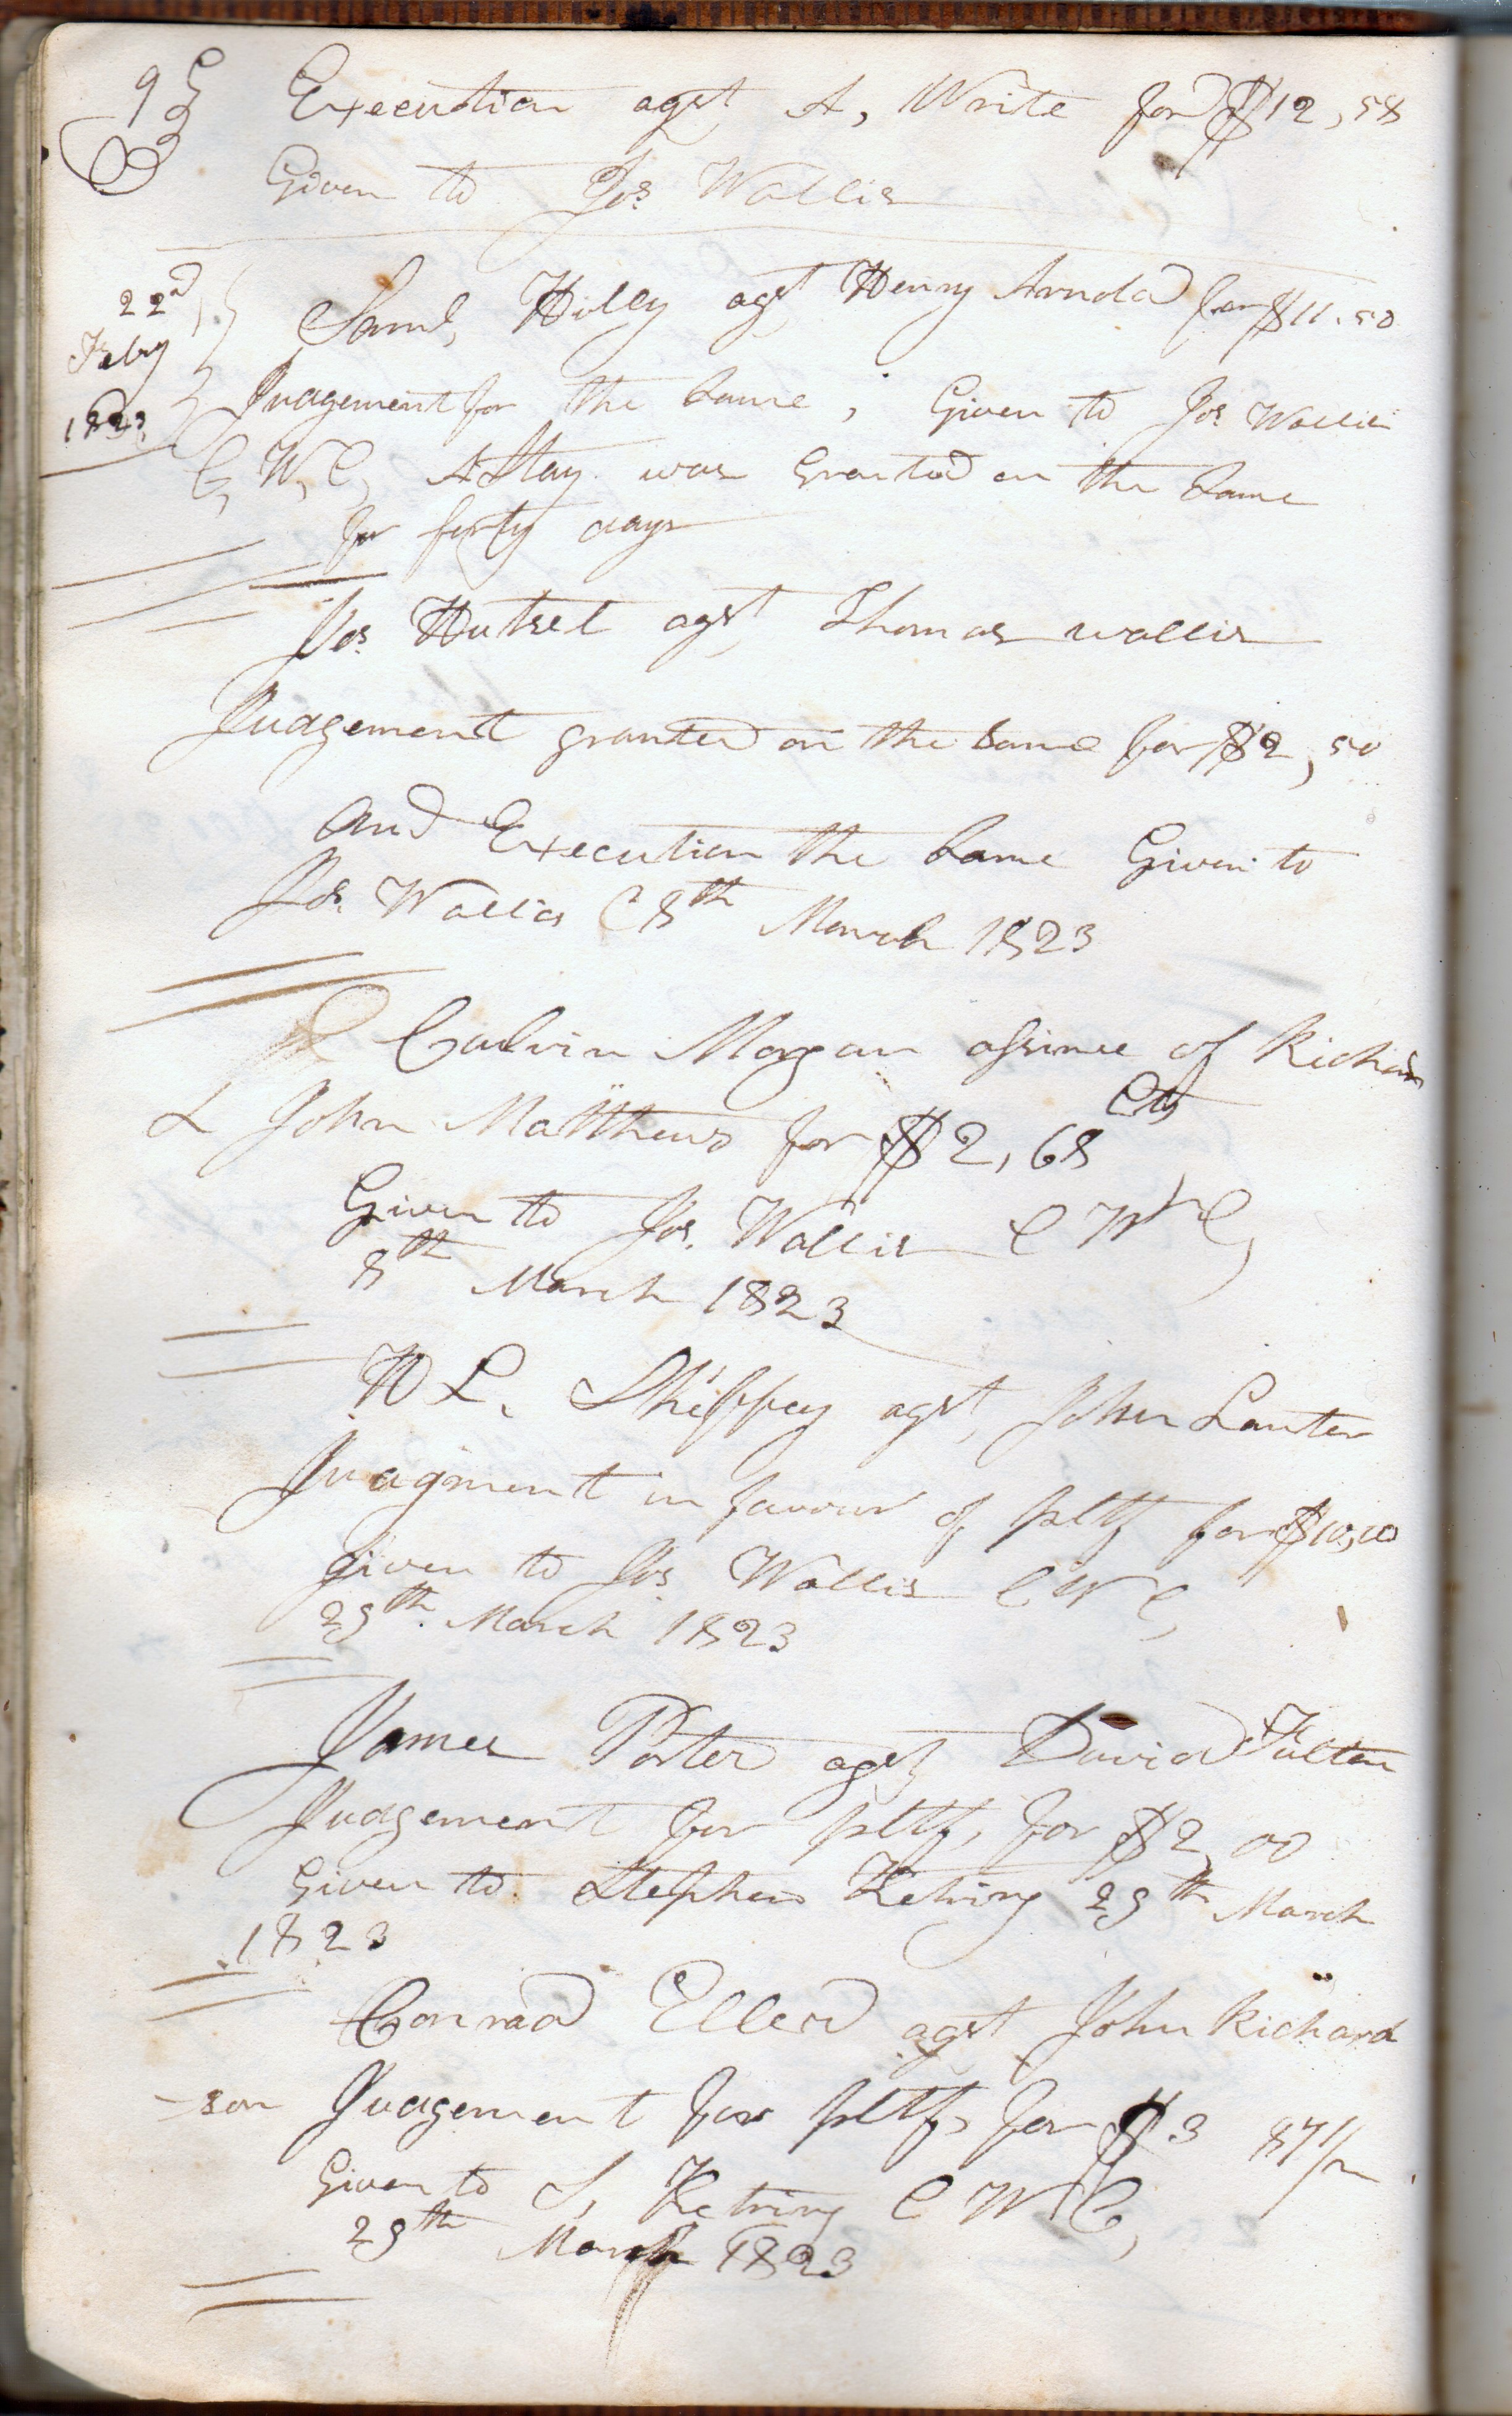 9 Execution agst A, Write for $12,58
Given to Jos Wallis
22d
Feby
1823,
Saml, Hiley agst Henry Arnold for $11.50
Judgement for the same, Given to Jos Wallis
C, W, C, A Stay was Granted on the same
for forty days
Jos. Hutsel agst, Thomas wallis
Judgement granted on the same for $2,50
And Execution the same Given to
Jos. Wallis 8th March 1823
Calvin Morgan assinee of Richard
L John Matthews for $2,68 Cts
Given to Jos. Wallis C W C,
8th March 1823
W L. Sheffey agst, John Lanter
Judgment in favour of pltf for $10,00
given to Jos Wallis C W C,
29th March 1823
James Porter agst David Fulton
Judgement for pltf, for $2,00
Given to Stephen Ketring 29th March
1823
Conrad Eller agst John Richard
-son Judgement for pltf, for $3 87 1/2
Given to S, Ketring C W C,
29th March 1823